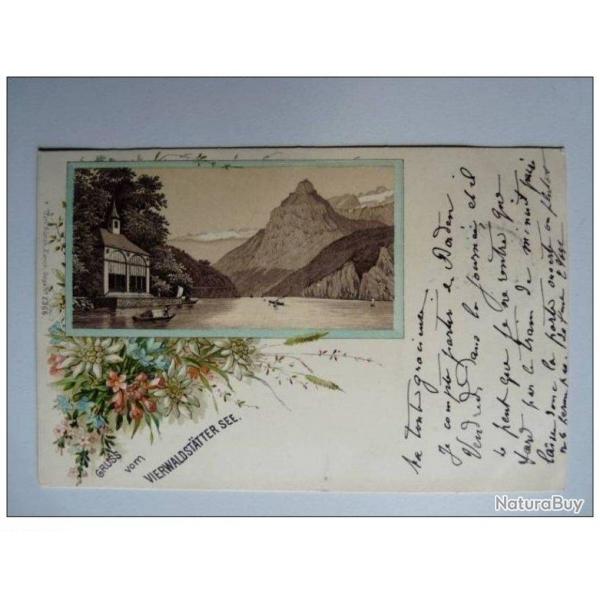 GRUSS
vom
VIERWALDSTÄTTER SEE.
Ma toute gracieuse!
Je compte partir de Baden
Vendredi dans la journée et il
se peut que je ne rentre que
tard par le tram de minuit
laisse donc la porte ouverte
ne la ferme pas.
NaturaBuy